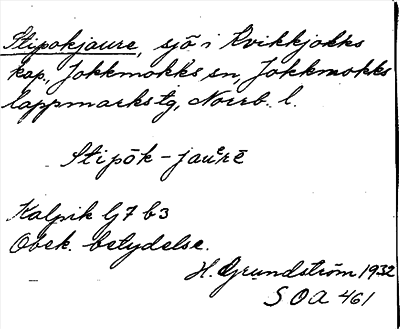 Stipokjaure, sjö i Kvikkjokks
kap., Jokkmokks sn, Jokkmokks
lappmarks tg, Norrb. l.
Stipōk-jauᵉrē
Kalpik G7 b3
Obek. betydelse.
H. Grundström 1932
SOA 461